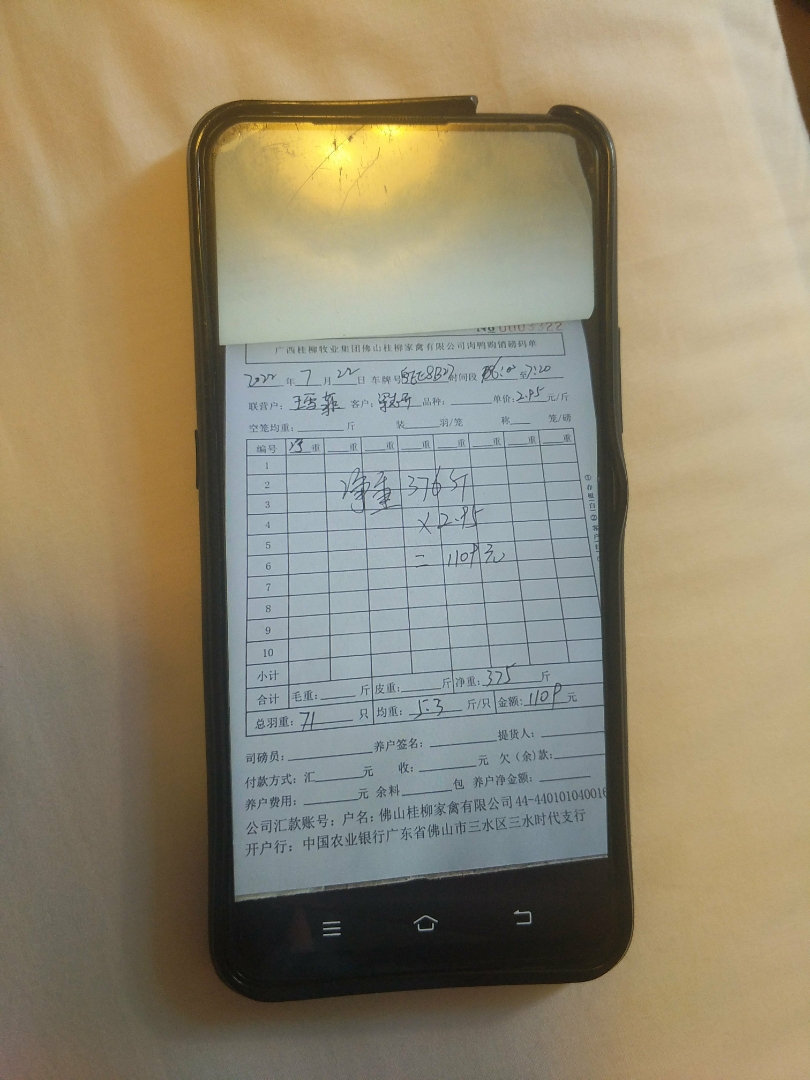 No 0003322
广西桂柳牧业集团佛山桂柳家禽有限公司肉鸭购销磅码单
2022年7月22日 车牌号 时间段 至7:20
联营户: 客户: 品种: 单价:2.95元/斤
空笼均重: 斤 装 羽/笼 称 笼/磅
编号 净重 重 重 重 重 重 重 重
1
2
净重 376斤
3
4
×2.95
5
6
=1109元
7
8
9
10
小计
合计 毛重: 斤 皮重: 斤 净重:375斤
总羽重:71只 均重:5.3斤/只 金额:1109元
司磅员: 养户签名: 提货人:
付款方式:汇 元 收: 元 欠(余)款:
养户费用: 元 余料 包 养户净金额:
公司汇款账号:户名:佛山桂柳家禽有限公司 44-440101040016
开户行:中国农业银行广东省佛山市三水区三水时代支行